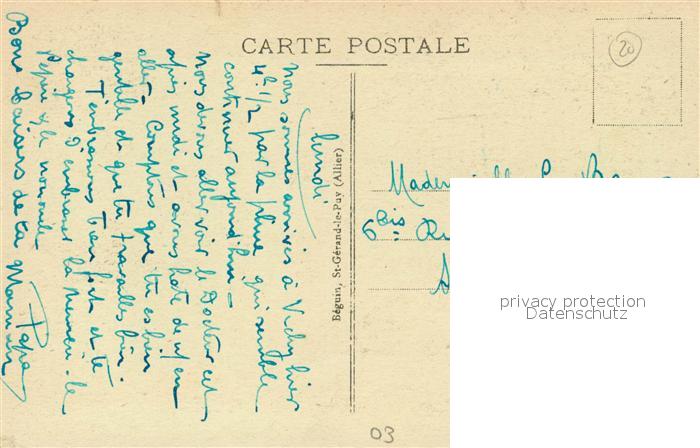 CARTE POSTALE
20
lundi
nous sommes arrivés à Vichy hier
4h 1/2 par la pluie qui semble
continuer aujourd'hui -
nous devons aller voir le Docteur cet
après midi et avons hate de n/ en
aller - Comptons que tu es bien
gentille et que tu travailles bien.
T'embrassons bien fort et te
chargeons d'embrasser la
Pépère & le
Bons baisers de ta Maman
Papa
Béguin, St-Gérand-le-Puy (Allier)
6 bis Ru
privacy protection
Datenschutz
03